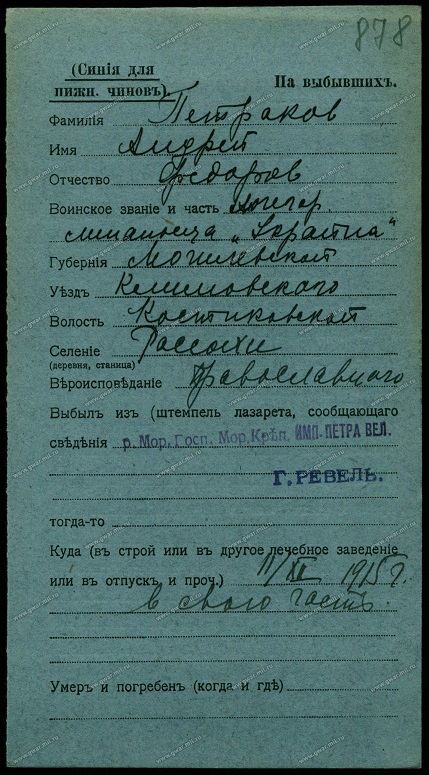 878
(Синія для
нижн. чиновъ).
На выбывшихъ.
Фамилія Петраков
Имя Андрей
Отчество Федоров
Воинское званіе и часть
миноносца "Украина"
Губернія Могилевской
Уѣздъ Климовского
Волость Костюковской
Селеніе Рассохи
(деревня, станица)
Вѣроисповѣданіе Православного
Выбылъ изъ (штемпель лазарета, сообщающаго
свѣдѣнія р. Мор. Госп. Мор. Крѣп. ИМП. ПЕТРА ВЕЛ.
Г. РЕВЕЛЬ.
тогда-то
Куда (въ строй или въ другое лечебное заведеніе
или въ отпускъ и проч.) 11/XII 1915 г.
в свою часть.
Умеръ и погребенъ (когда и гдѣ)
www.gwar.mil.ru